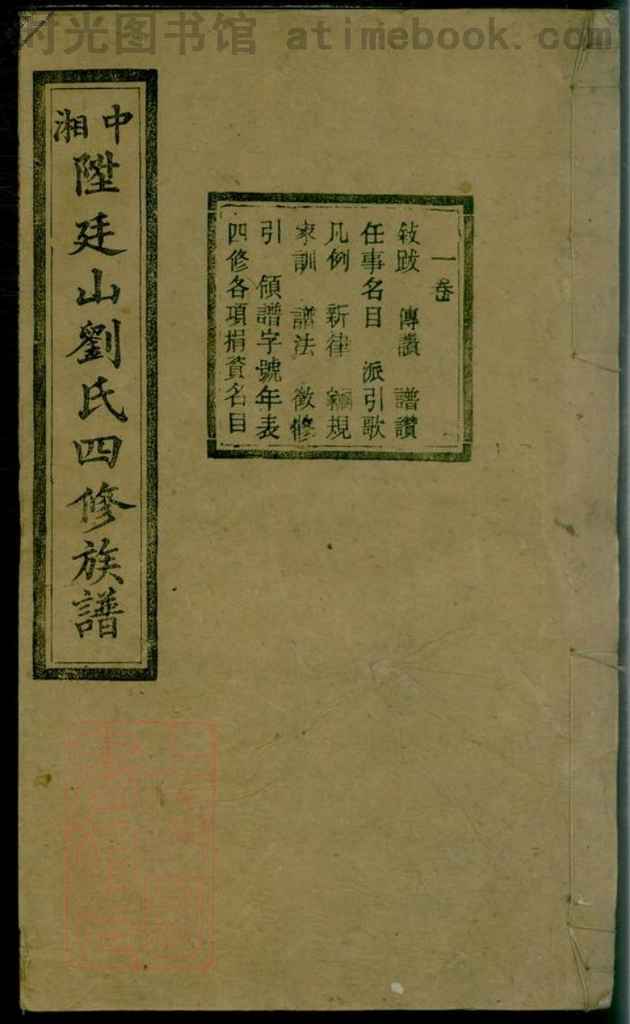 时光图书馆 atimebook.com
中湘
陞廷山劉氏四修族譜
一卷
敍跋 傳讚 譜讚
任事名目 派引歌
凡例 新律 綱規
家訓 譜法 徵修
引 領譜字號年表
四修各項捐資名目